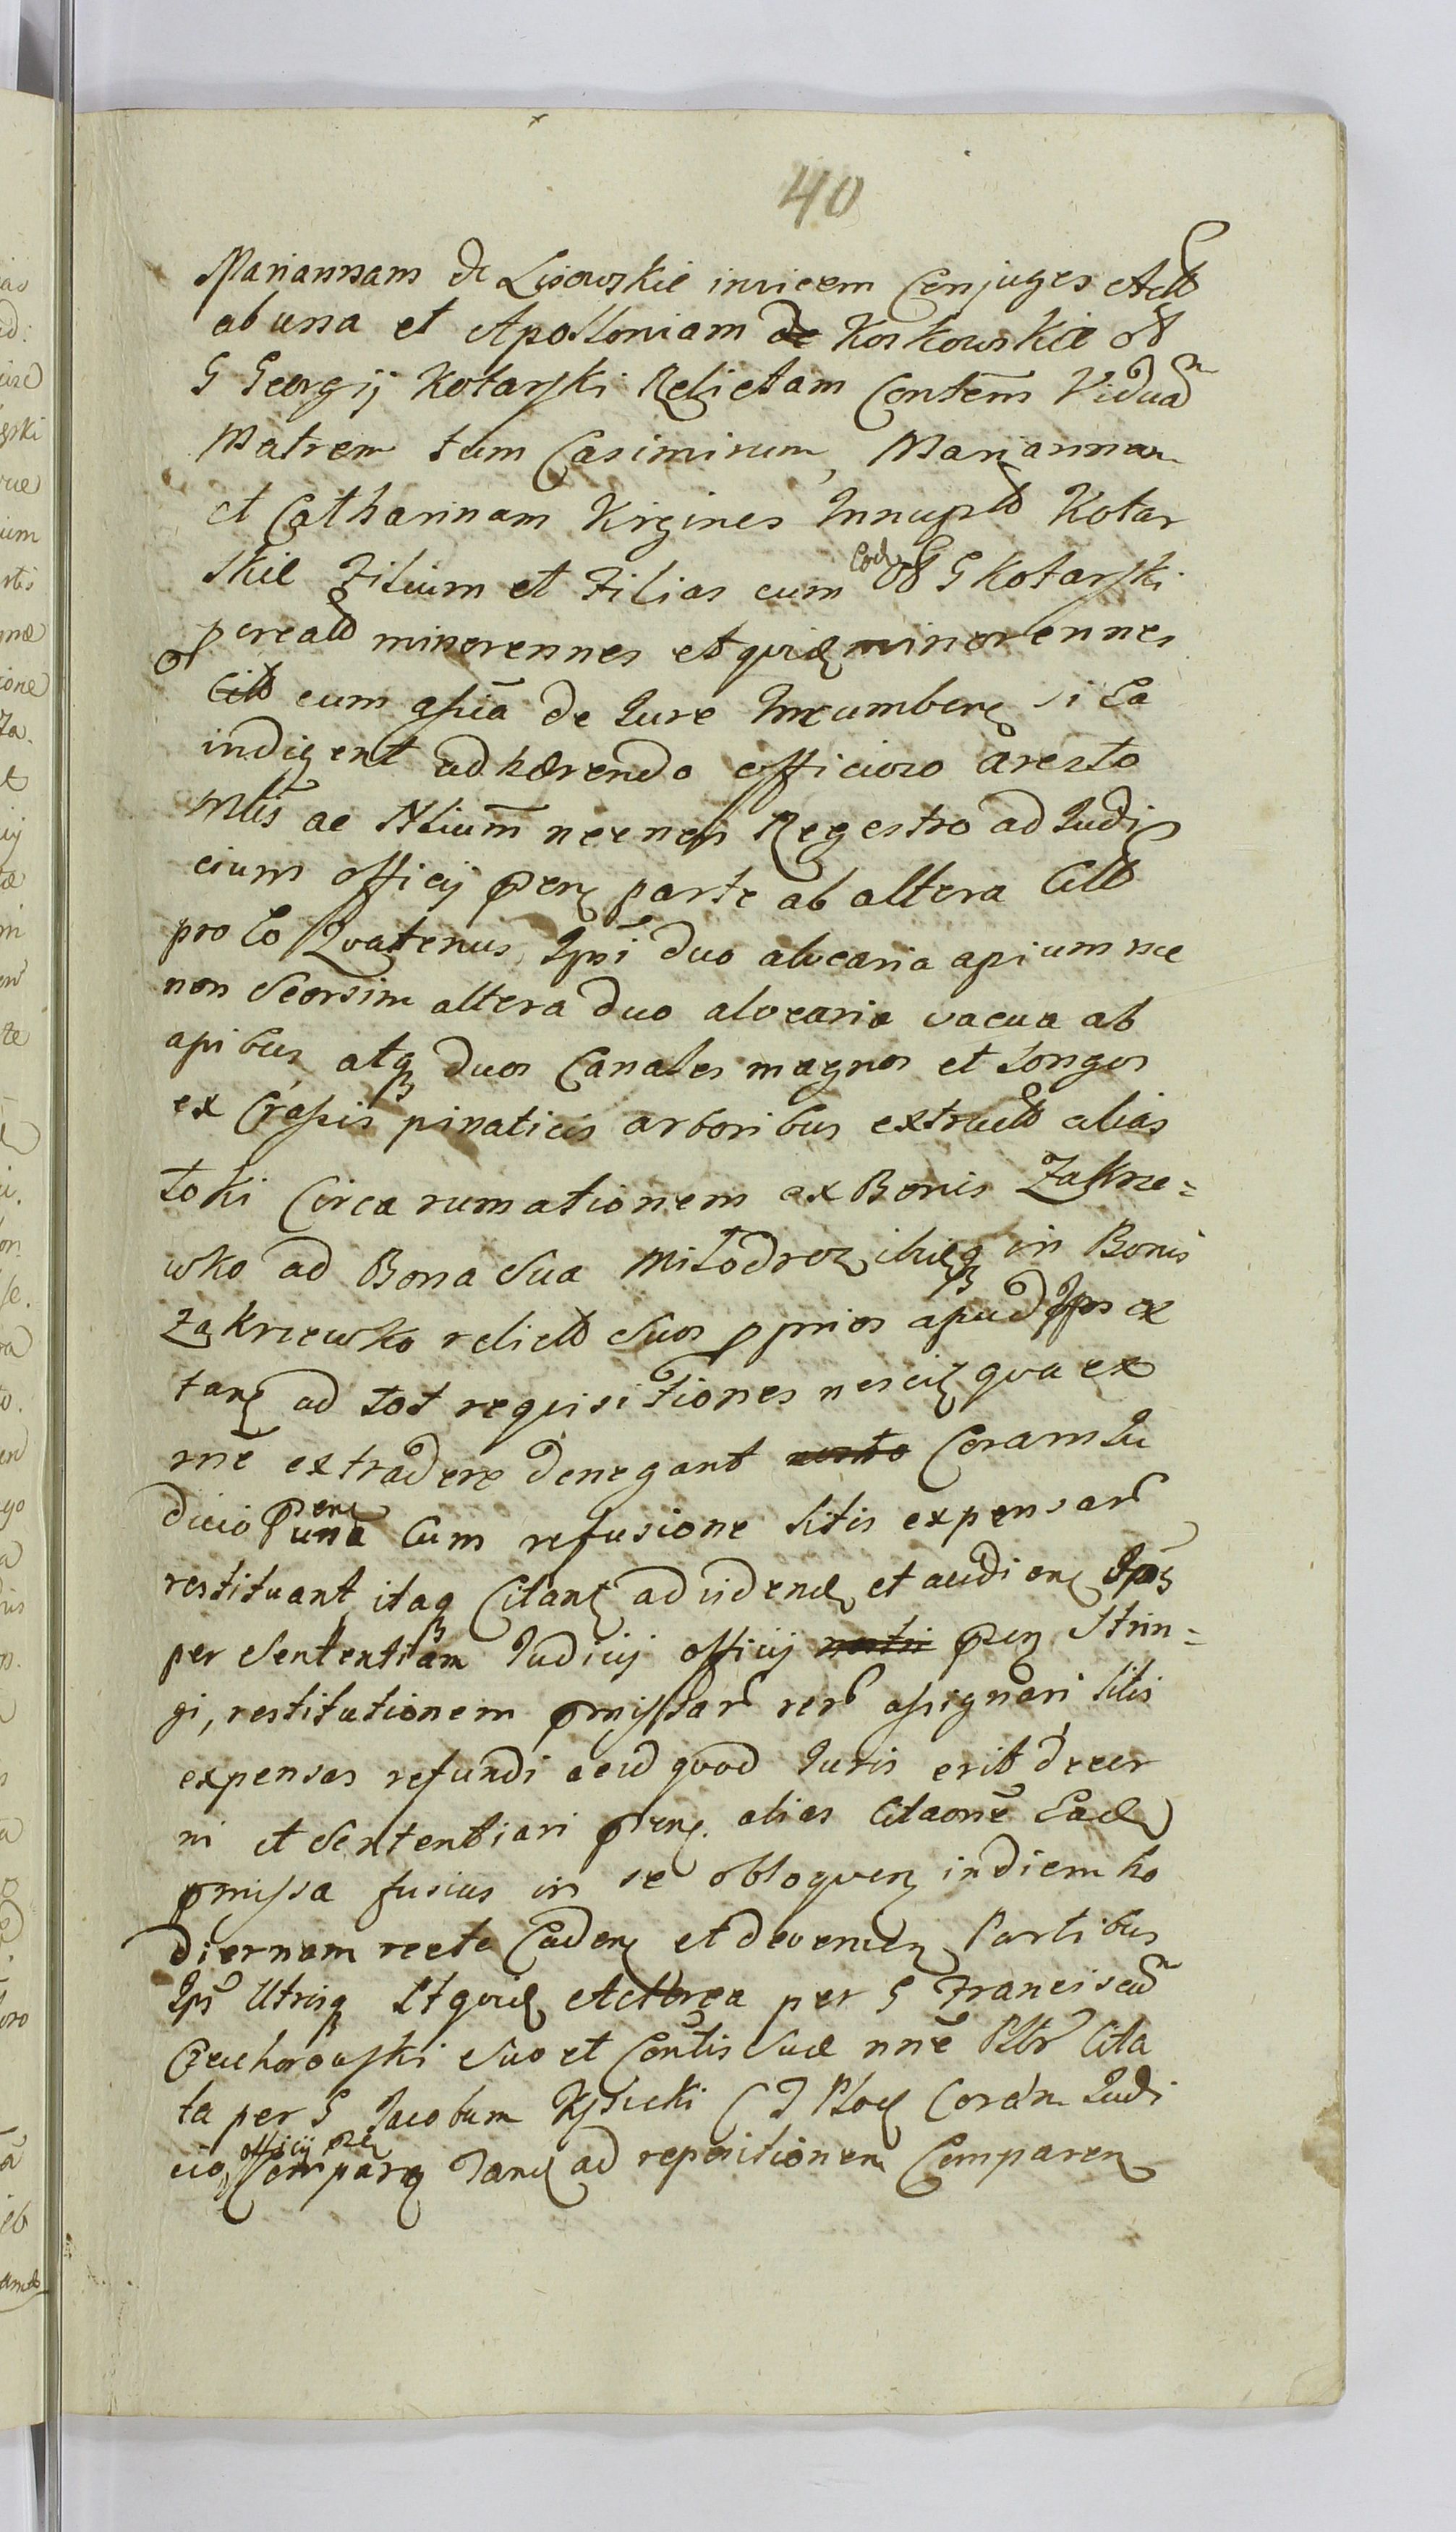 40
Mariannam de Lisowskie invicem Conjuges Act
ab una et Apolloniam de Koskowskie
G Georgij Kotarski Relictam Contem Viduam
Matrem tum Casimirum, Mariannam
et Catharinam Virgines Innupt Kotar
skie Filium et Filias cum Eod G Kotarski
pcreat minorennes et quid minorennes
Cit cum de Iure Incumben si Ea
indigent adhærendo officioso aresto
Mtis ac Nlium necnon Regestro ad Judi
cium officij pen parte ab altera Citt
pro Eo Quatenus Ipsi duo alvearia apium nec
non Seorsim altera duo alvearia vacua ab
apibus atq duos Canales magnos et longos
ex Crassis pinaticis arboribus extract alias
toki Circa rumationem ex Bonis Zakrze=
wko ad Bona Sua Miłodroz ibidq in Bonis
Zakrzewko relict Suos pprios apud Ipsos ex
tan ad tot requisitiones nesciq qua ex
rne extradere denegant Coram Iu
dicio pen una Cum refusione litis expensar
restituant itaq Citant ad vidend et audien Ipos
per Sententiam Iudicij officij pen Strin=
gi, restitutionem pmissar rer assignari litis
expensas refundi ac id quod Iuris erit decer
ni et Sententiari pen. alias Citaone Ead
pmissa fusius in se obloquen in diem ho
diernam recte Caden et devenien Partibus
Ips Utrisq Et quid Actorea per G Franciscum
Czechorowski Suo et Contis Suæ nne Pltr Cita
ta per G Jacobum Kysicki C T Ploc Coram Judi
cio officij pen Comparen Tand ad repositionem Comparen